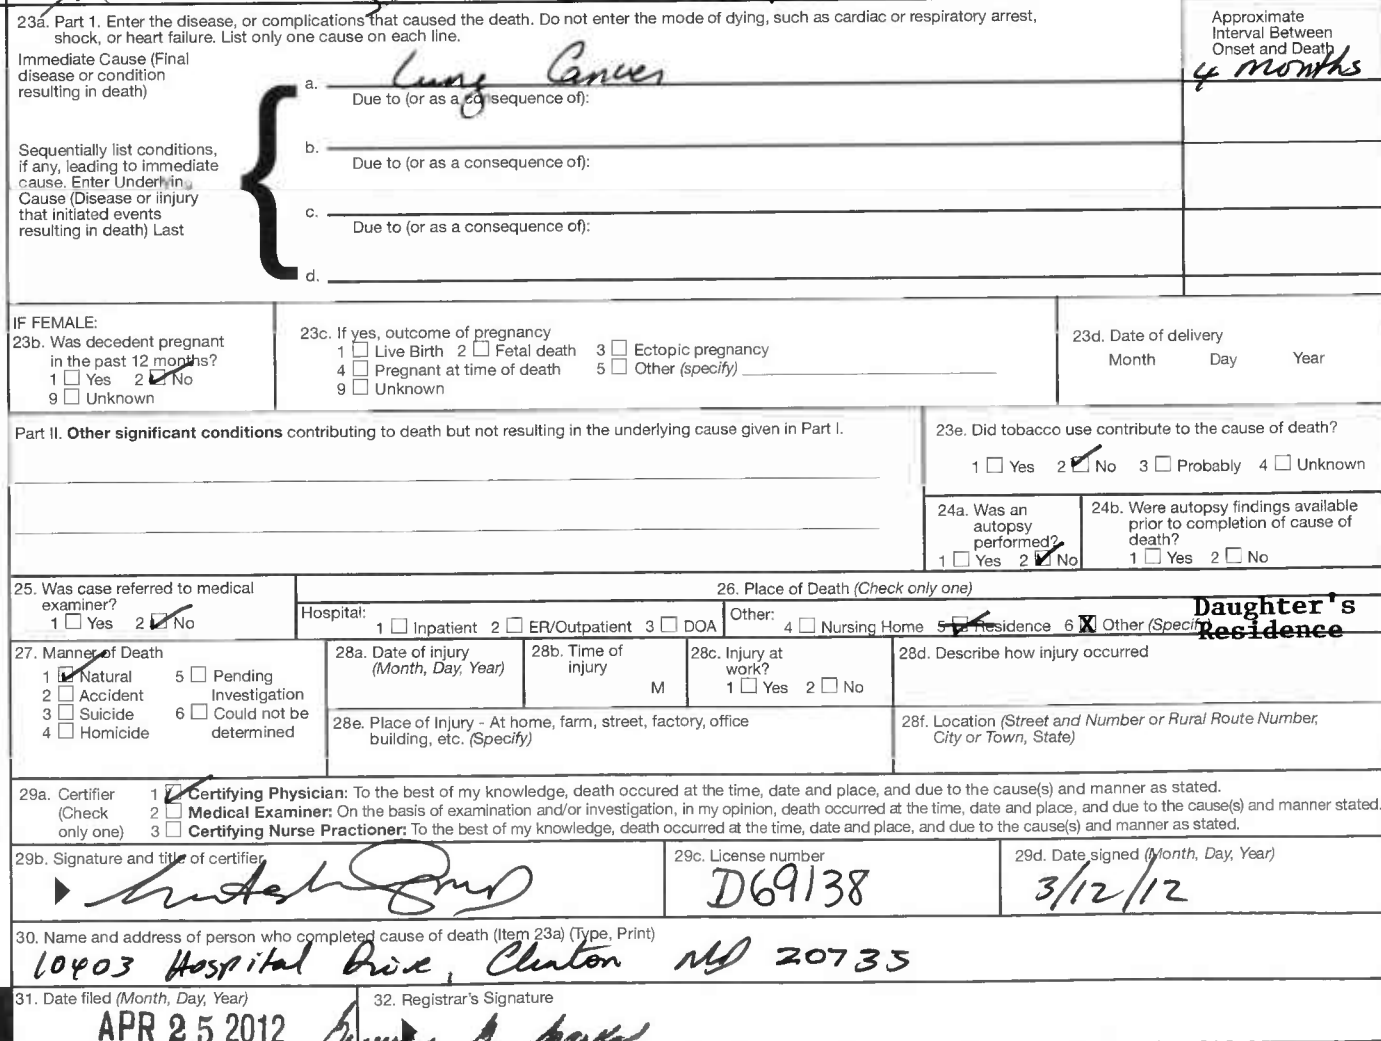 23a. Part 1. Enter the disease, or complications that caused the death. Do not enter the mode of dying, such as cardiac or respiratory arrest,
shock, or heart failure. List only one cause on each line.
Approximate
Interval Between
Onset and Death
Immediate Cause (Final
disease or condition
resulting in death)
a. Lung Cancer
4 months
Due to (or as a consequence of):
Sequentially list conditions,
if any, leading to immediate
cause. Enter Underlyin
Cause (Disease or iinjury
that initiated events
resulting in death) Last
b.
Due to (or as a consequence of):
c.
Due to (or as a consequence of):
d.
IF FEMALE:
23b. Was decedent pregnant
in the past 12 months?
1 ☐ Yes 2 ☑ No
9 ☐ Unknown
23c. If yes, outcome of pregnancy
1 ☐ Live Birth 2 ☐ Fetal death 3 ☐ Ectopic pregnancy
4 ☐ Pregnant at time of death 5 ☐ Other (specify)
9 ☐ Unknown
23d. Date of delivery
Month Day Year
Part II. Other significant conditions contributing to death but not resulting in the underlying cause given in Part I.
23e. Did tobacco use contribute to the cause of death?
1 ☐ Yes 2 ☑ No 3 ☐ Probably 4 ☐ Unknown
24a. Was an
autopsy
performed?
1 ☐ Yes 2 ☑ No
24b. Were autopsy findings available
prior to completion of cause of
death?
1 ☐ Yes 2 ☐ No
25. Was case referred to medical
examiner?
1 ☐ Yes 2 ☑ No
26. Place of Death (Check only one)
Hospital:
1 ☐ Inpatient 2 ☐ ER/Outpatient 3 ☐ DOA
Other:
4 ☐ Nursing Home 5 ☑ Residence 6 X Other (Specify
Daughter's
Residence
27. Manner of Death
1 ☑ Natural
2 ☐ Accident
3 ☐ Suicide
4 ☐ Homicide
5 ☐ Pending
Investigation
6 ☐ Could not be
determined
28a. Date of injury
(Month, Day, Year)
28b. Time of
injury
M
28c. Injury at
work?
1 ☐ Yes 2 ☐ No
28d. Describe how injury occurred
28e. Place of Injury - At home, farm, street, factory, office
building, etc. (Specify)
28f. Location (Street and Number or Rural Route Number,
City or Town, State)
29a. Certifier
(Check
only one)
1 ☑ Certifying Physician: To the best of my knowledge, death occured at the time, date and place, and due to the cause(s) and manner as stated.
2 ☐ Medical Examiner: On the basis of examination and/or investigation, in my opinion, death occurred at the time, date and place, and due to the cause(s) and manner stated.
3 ☐ Certifying Nurse Practioner: To the best of my knowledge, death occurred at the time, date and place, and due to the cause(s) and manner as stated.
29b. Signature and title of certifier
29c. License number
D69138
29d. Date signed (Month, Day, Year)
3/12/12
30. Name and address of person who completed cause of death (Item 23a) (Type, Print)
10403 Hospital Drive, Clinton MD 20735
31. Date filed (Month, Day, Year)
APR 25 2012
32. Registrar's Signature